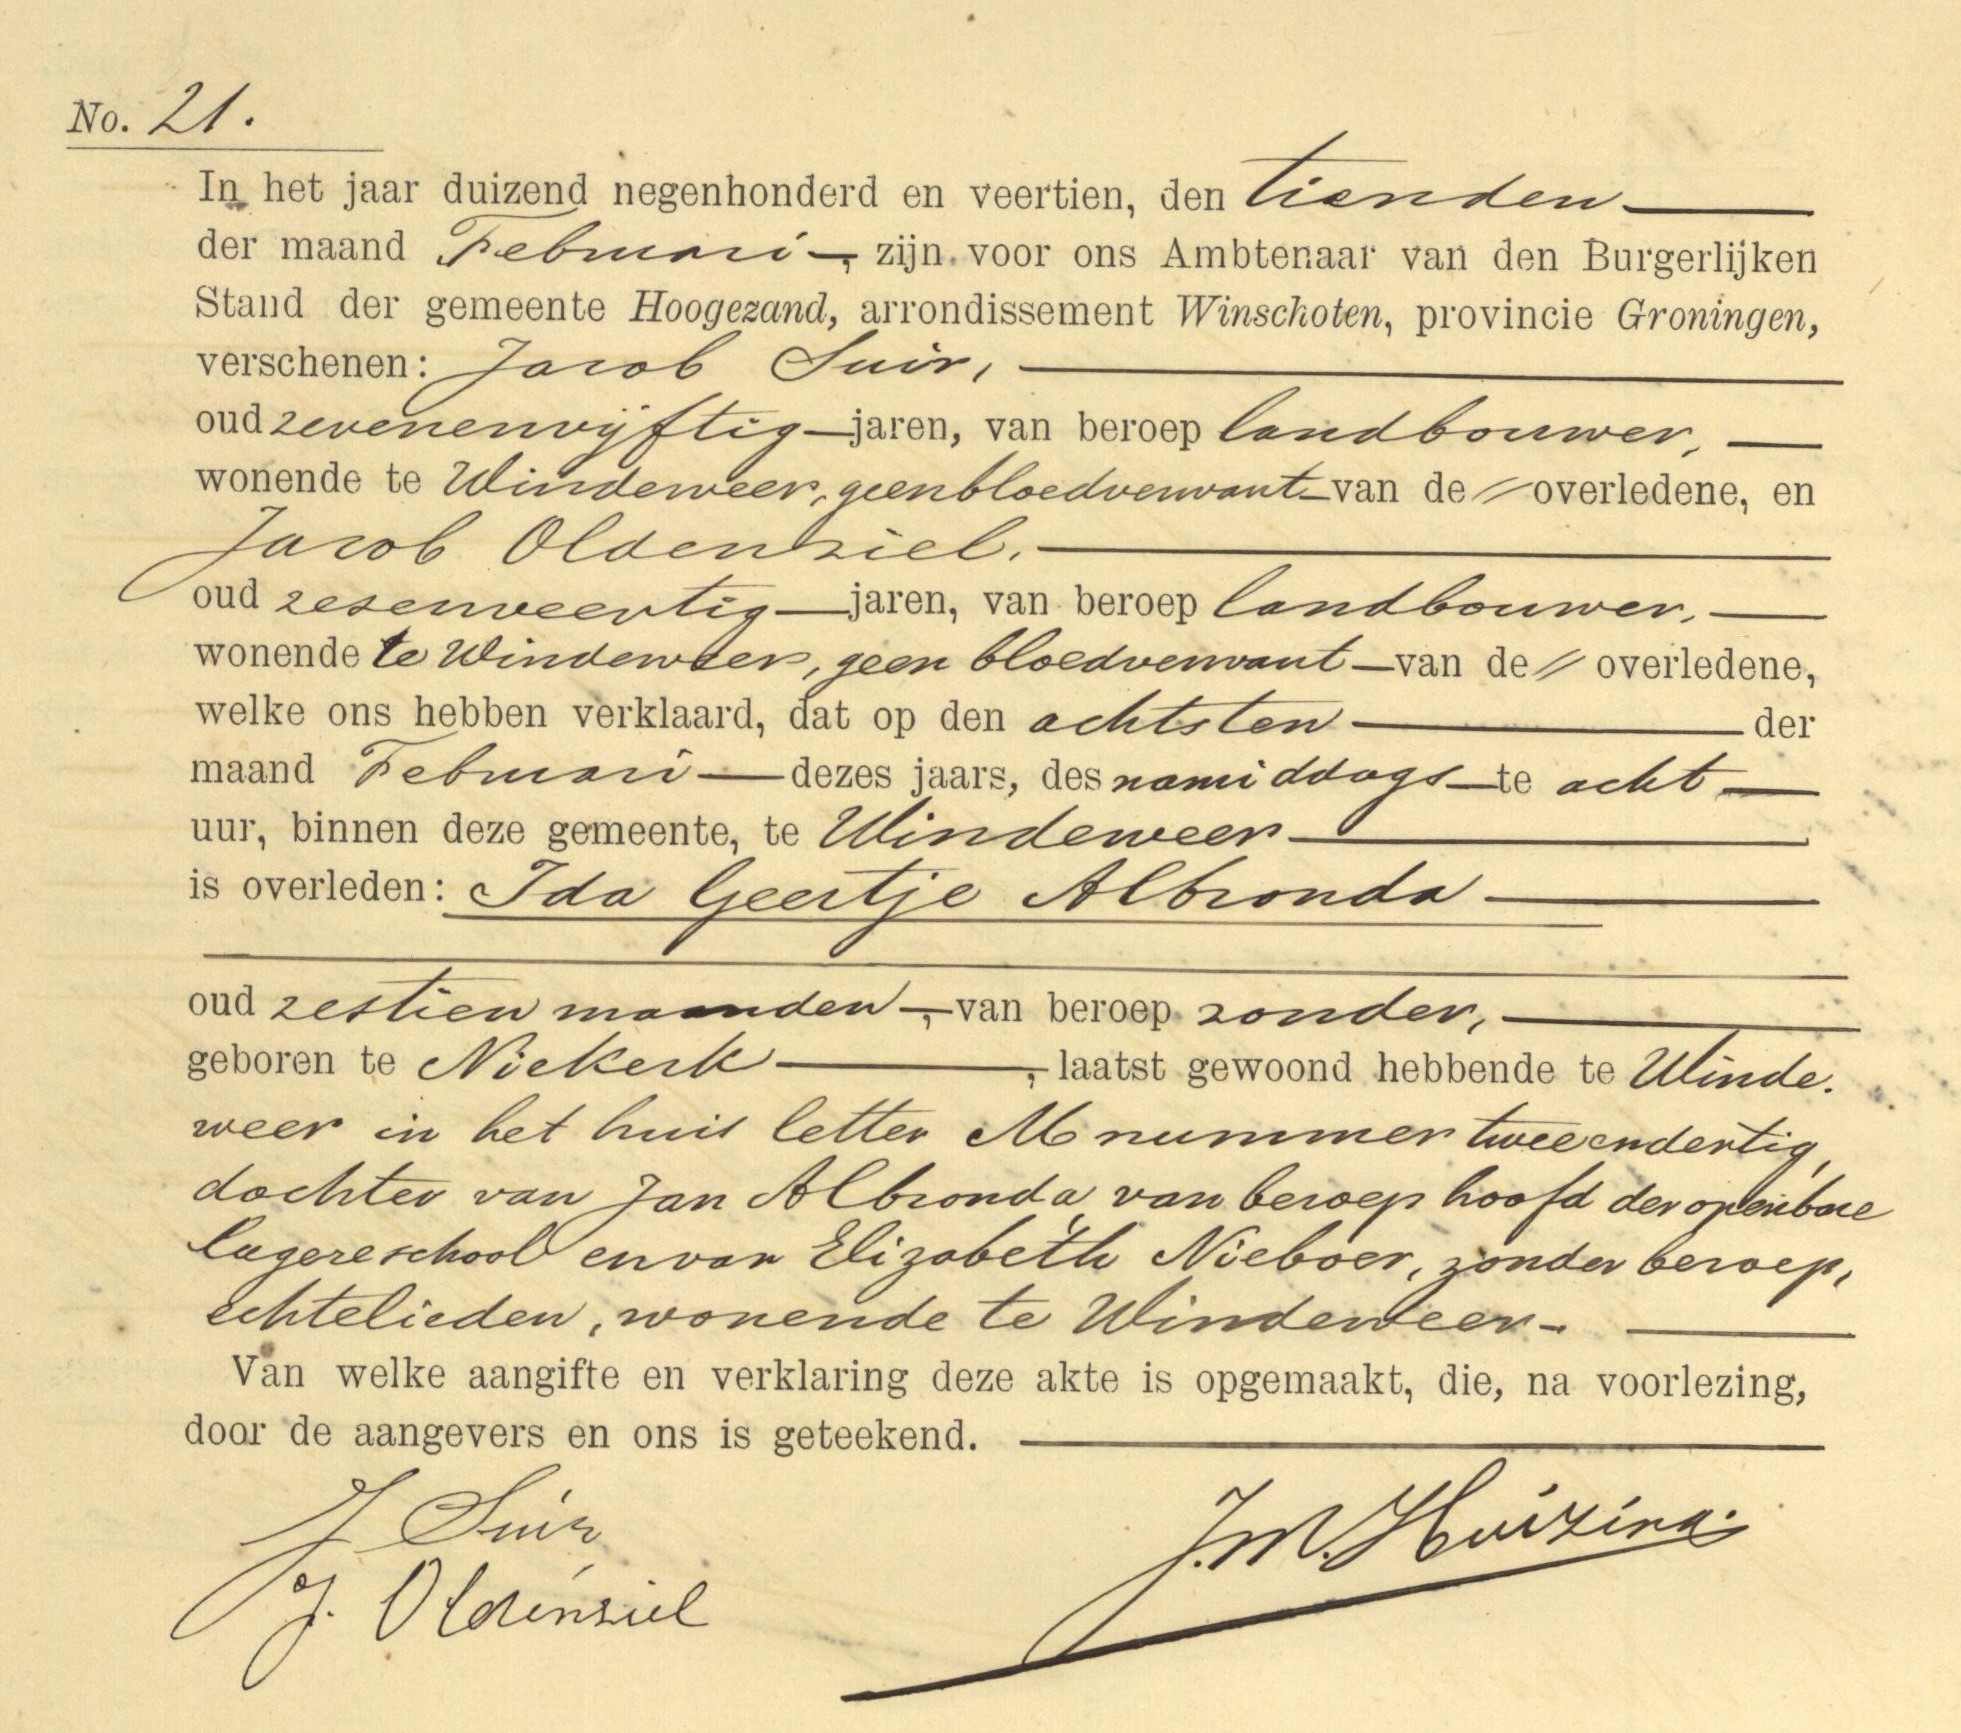 No. 21.
In het jaar duizend negenhonderd en veertien, den tienden
der maand Februari, zijn voor ons Ambtenaar van den Burgerlijken
Stand der gemeente Hoogezand, arrondissement Winschoten, provincie Groningen,
verschenen: Jacob Suir,
oud zevenenvijftig jaren, van beroep landbouwer,
wonende te Windeweer, geen bloedverwant van de overledene, en
Jacob Oldenziel,
oud zesenveertig jaren, van beroep landbouwer,
wonende te Windeweer, geen bloedverwant van de overledene,
welke ons hebben verklaard, dat op den achtsten der
maand Februari dezes jaars, des namiddags te acht
uur, binnen deze gemeente, te Windeweer
is overleden: Ida Geertje Albronda
oud zestien maanden, van beroep zonder,
geboren te Niekerk, laatst gewoond hebbende te Winde-
weer in het huis letter M nummer tweeendertig,
dochter van Jan Albronda, van beroep hoofd der openbare
lagere school en van Elizabeth Nieboer, zonder beroep,
echtelieden, wonende te Windeweer.
Van welke aangifte en verklaring deze akte is opgemaakt, die, na voorlezing,
door de aangevers en ons is geteekend.
J Suir
J. Oldenziel
J. M. Huizinga